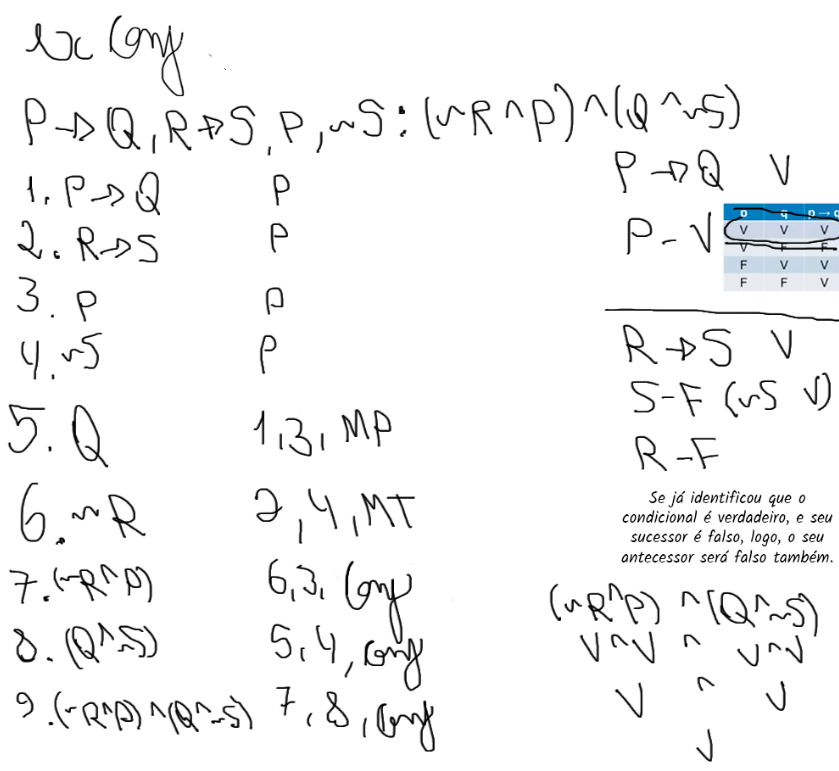 ex Conj
P→Q, R→S, P, ~S : (~R ^ P) ^ (Q ^ ~S)
1. P→Q P
2. R→S P
3. P P
4. ~S P
5. Q 1,3, MP
6. ~R 2,4, MT
7. (~R^P) 6,3, Conj
8. (Q^~S) 5,4, conj
9. (~R^P) ^ (Q^~S) 7,8, conj
P→Q V
P - V
p q p→q
V V V
V F F
F V V
F F V
R→S V
S-F (~S V)
R-F
Se já identificou que o
condicional é verdadeiro, e seu
sucessor é falso, logo, o seu
antecessor será falso também.
(~R^P) ^ (Q^~S)
V^V ^ V^V
V ^ V
V